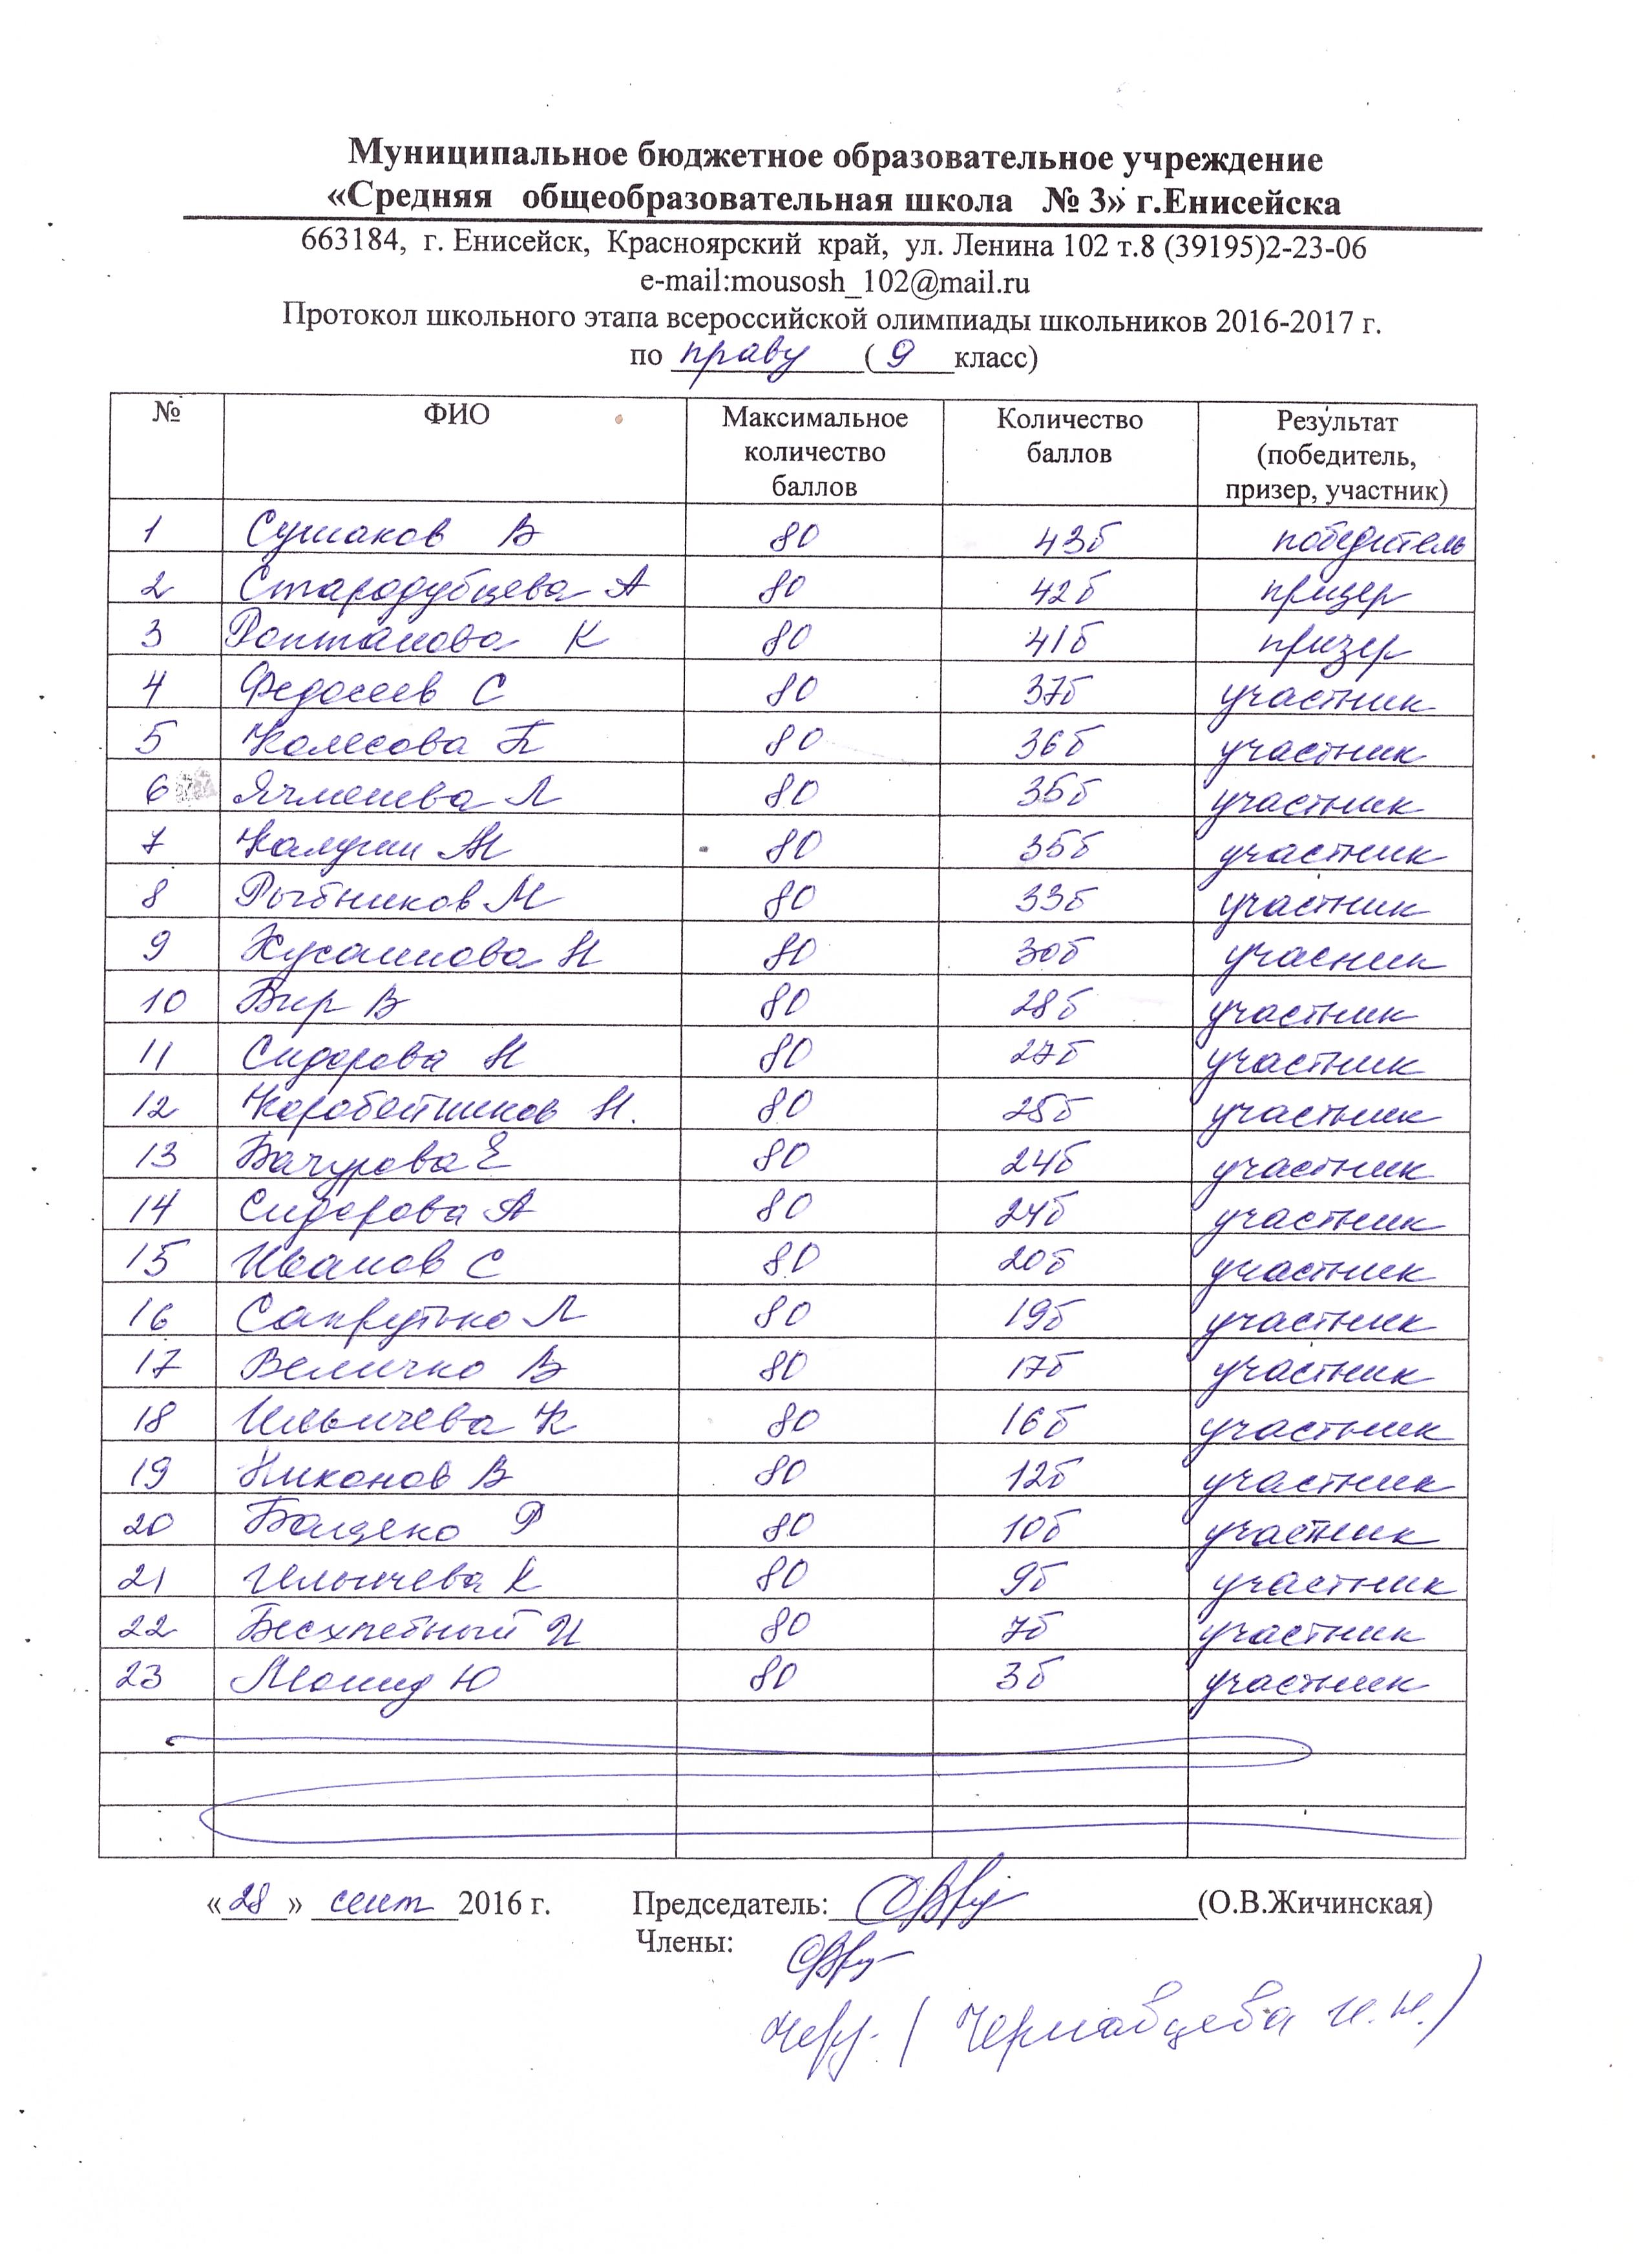 Муниципальное бюджетное образовательное учреждение
«Средняя общеобразовательная школа № 3» г.Енисейска
663184, г. Енисейск, Красноярский край, ул. Ленина 102 т.8 (39195)2-23-06
e-mail:mousosh_102@mail.ru
Протокол школьного этапа всероссийской олимпиады школьников 2016-2017 г.
по праву (9 класс)
№ ФИО Максимальное количество баллов Количество баллов Результат (победитель, призер, участник)
1 Сушаков В 80 43б победитель
2 Стародубцева А 80 42б призер
3 К 80 41б призер
4 Федосеев С 80 37б участник
5 Колесова 80 36б участник
6 Ячменева Л 80 35б участник
7 Калугин 80 35б участник
8 Рыбников М 80 33б участник
9 Хусаинова Н 80 30б учасник
10 Вир В 80 28б участник
11 Сидорова Н 80 27б участник
12 Коробейников Н. 80 25б участник
13 Бачурова Е 80 24б участник
14 Сидорова А 80 24б участник
15 Иванов С 80 20б участник
16 Сапрутько Л 80 19б участник
17 Величко В 80 17б участник
18 Ильичева К 80 16б участник
19 Никонов В 80 12б участник
20 Р 80 10б участник
21 К 80 9б участник
22 Бесхлебный И 80 7б участник
23 Ю 80 3б участник
«28» сент 2016 г. Председатель: (О.В.Жичинская)
Члены:
(Чернавцева И.Н.)